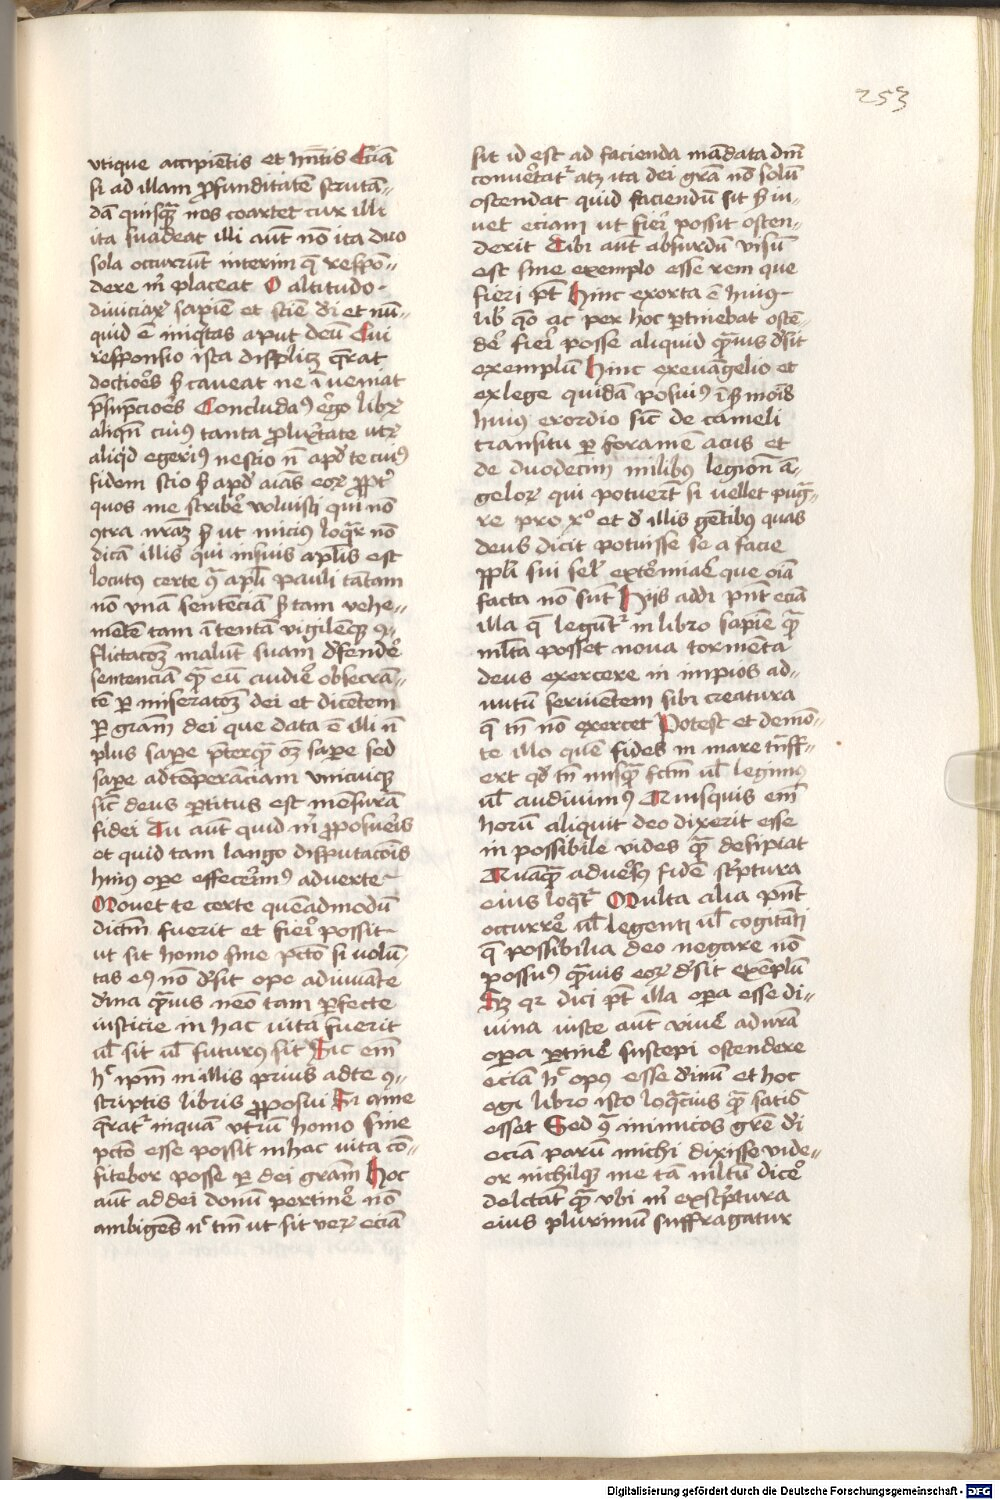 253
vtique accipiētis et hn̄tis Eciā
si ad illam ꝓfunditatē scrutā-
dā quisquā nos coartet cur illi
ita suadeat illi aūt nō ita duo
sola occurrūt interim q̄ respō-
dere m̄ placeat O altitudo
diuiciaꝝ sapiēe et sciē dei et nū-
quid ē iniqͥtas aput deū Cui
responsio ista displicꝫ q̄rat
doctiores sꝫ caueat ne īueniat
p̄sūpciōes Concludaꝰ ergo libꝝ
aliqn̄ cuiꝰ tanta ꝓlixitate vtꝝ
aliqͥd egeriꝰ nescio n̄ apd̄ te cuiꝰ
fidem scio sꝫ apd̄ aīas eoꝝ ꝓpt̄
quos me scribe᷑ voluisti qui nō
ꝯtra nr̄aꝫ sꝫ ut miciꝰ loqr̄ nō
dicā illis qui in suis apl̄is est
locutꝰ certe ꝯ̄ apl̄i pauli tātam
nō vnā sentenciā sꝫ tam vehe-
mētē tam ītentā vigilēqꝫ ꝯ-
flictacōꝫ malūt suam defende᷑
sentenciā quā eū audire obsecrā-
tē ꝑ miseracōꝫ dei et dicētem
ꝑ grām dei que data ē illi n̄
plus sape p̄terquā oꝫ sape sed
sape ad tēperanciam vnicuiqꝫ
sic̄ deus ꝑtitus est mēsurā
fidei Tu aūt quid m̄ ꝓposueris
et quid tam longo disputacōis
huiꝰ ope effecerimꝰ aduerte
Mouet te certe quēadmodū
dictm̄ fuerit et fieri possit
ut sit homo sine pctō si volū-
tas eꝰ nō desit ope adiuuāte
diuina quāuis nēo tam ꝑfecte
iusticie in hac uita fuerit
ul̄ sit ul̄ futurꝰ sit Sic em̄
hͨ ipm̄ in illis prius ad te ꝯ-
scriptis libris ꝓposui Si a me
q̄ratͬ inquā vtrū homo sine
pctō esse possit in hac uita cō-
fitebor posse ꝑ dei grām Hoc
aūt ad dei donū pertine᷑ nō
ambigēs nͨ tm̄ ut sit veꝝ eciā
sit id est ad facienda mādata dn̄i
conuertatͬ atqꝫ ita dei grā nō solū
ostendat quid faciendū sit sꝫ iu-
uet eciam ut fieri possit osten-
derit Tibi aūt absurdū visū
est sine exemplo esse rem que
fieri pt̄ Hinc exorta ē huiꝰ
libͥ qō ac per hoc ꝑtinebat ostē-
de᷑ fieri posse aliquid quāuis desit
exemplū Hinc ex euāgelio et
ex lege quidā posuiꝰ ī s̄mōis
huiꝰ exordio sic̄ de cameli
transitu ꝑ foramē acus et
de duodecim milibꝰ legionū ā-
geloꝝ qui potuerūt si uellet pug̅-
re pro xͦ et de illis gētibꝰ quas
deus dicit potuisse se a facie
ppl̄i sui sel̄ exterminaē que oīa
facta nō sūt Hiis addi pn̄t eciā
illa q̄ legūtͬ in libro sapiē quā
ml̄ta posset noua tormēta
deus exercere in impios ad-
nutū seruiētem sibi creaturā
q̄ tn̄ nō exercet Potest et de mō-
te illo quē fides in mare trāsff-
ert qd̄ tn̄ nusquā fc̄tm̄ ul̄ legimꝰ
ul̄ audiuimꝰ Quisquis em̄
horū aliquit deo dixerit esse
in possibile vides quā desipiat
Quāquā aduersꝰ fidē scͥptura
eius loqͥtͬ Multa alia pn̄t
occurre᷑ ul̄ legenti ul̄ cogitāti
q̄ possibilia deo negare nō
possuꝰ quāuis eoꝝ desit exēplū
Sꝫ qꝛ dici pt̄ illa opa esse di-
uina iuste aūt viue᷑ ad nr̄ā
opa ꝑtine᷑ suscepi ostendere
eciā hͨ opꝰ esse diuinū et hoc
egi libro isto loqͣcius quā satis
esset Sed ꝯ̄ inimicos grē dei
eciā parū michi dixisse vide-
or nichilqꝫ me tā ml̄tū dice᷑
delectat quā vbi m̄ et scͥptura
eius plurimū suffragatur
Digitalisierung gefördert durch die Deutsche Forschungsgemeinschaft - DFG